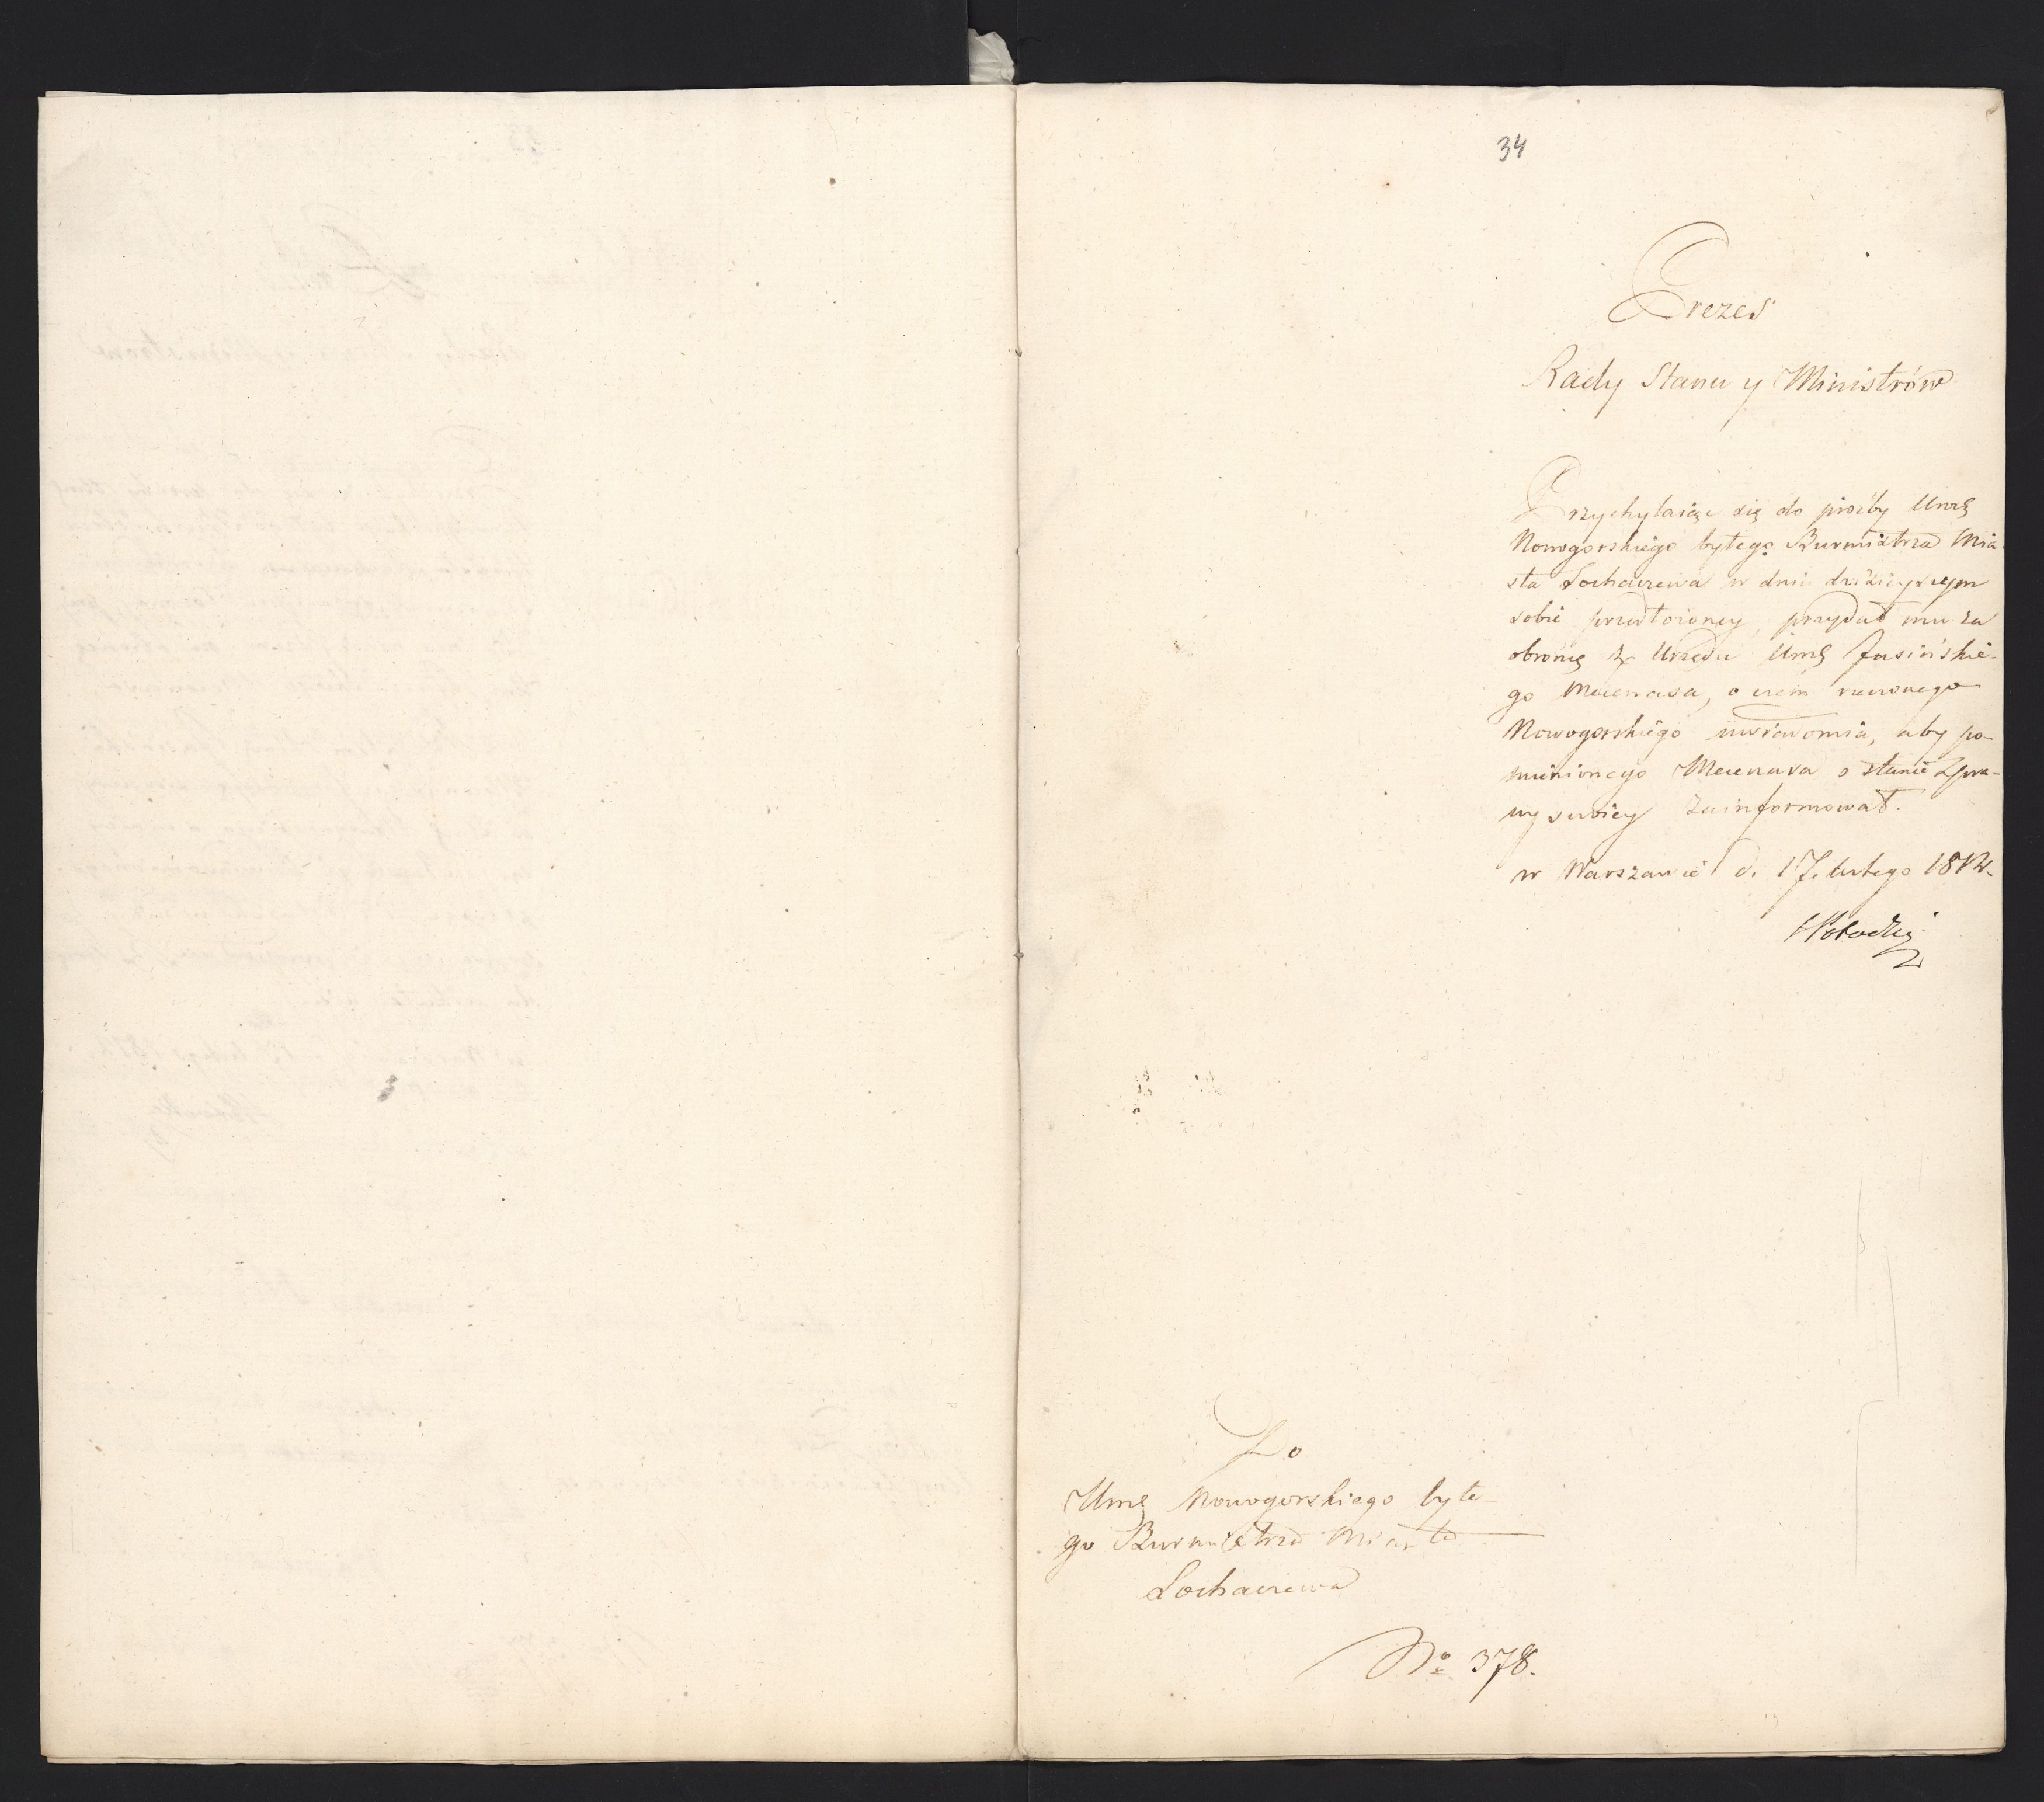 34
Prezes
Rady Stanu y Ministrów
Przychylaiąc się do prośby Urog
Nowogorskiego byłego Burmistrza Mia-
sta Sochaczewa w dniu dzisieyszym
sobie przedłożoney, przydał mu za
obronę z Urzędu Umę Jasińskie-
go Mecenasa, o czém rzeczonego
Nowogorskiego uwiadomia, aby po-
mienionego Mecenasa o stanie Spra-
wy swoiey zainformował.
w Warszawie d. 17. lutego 1812.
Do
Umę Nowogorskiego byłe-
go Burmistrza Miasta
Sochaczewa
No 378.